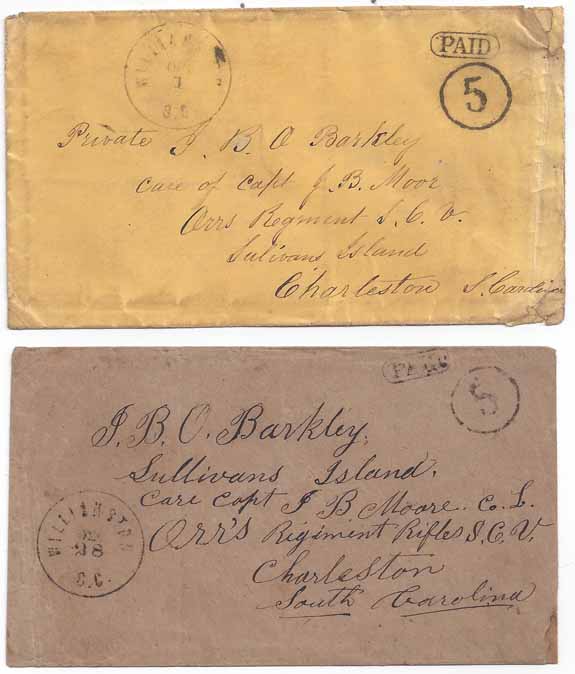 PAID
5
S.C
Private J. B. O Barkley
care of Capt J. B. Moor
Orrs Regment S. C. V.
Sulivans Island
Charleston S. Carolina
PAID
5
J. B. O. Barkley.
Sullivans Island.
Care Capt J B Moore. Co. L.
Orr's Regiment Rifles S. C. V.
Charleston
South Carolina
WILLIAMSTON
28
S.C.